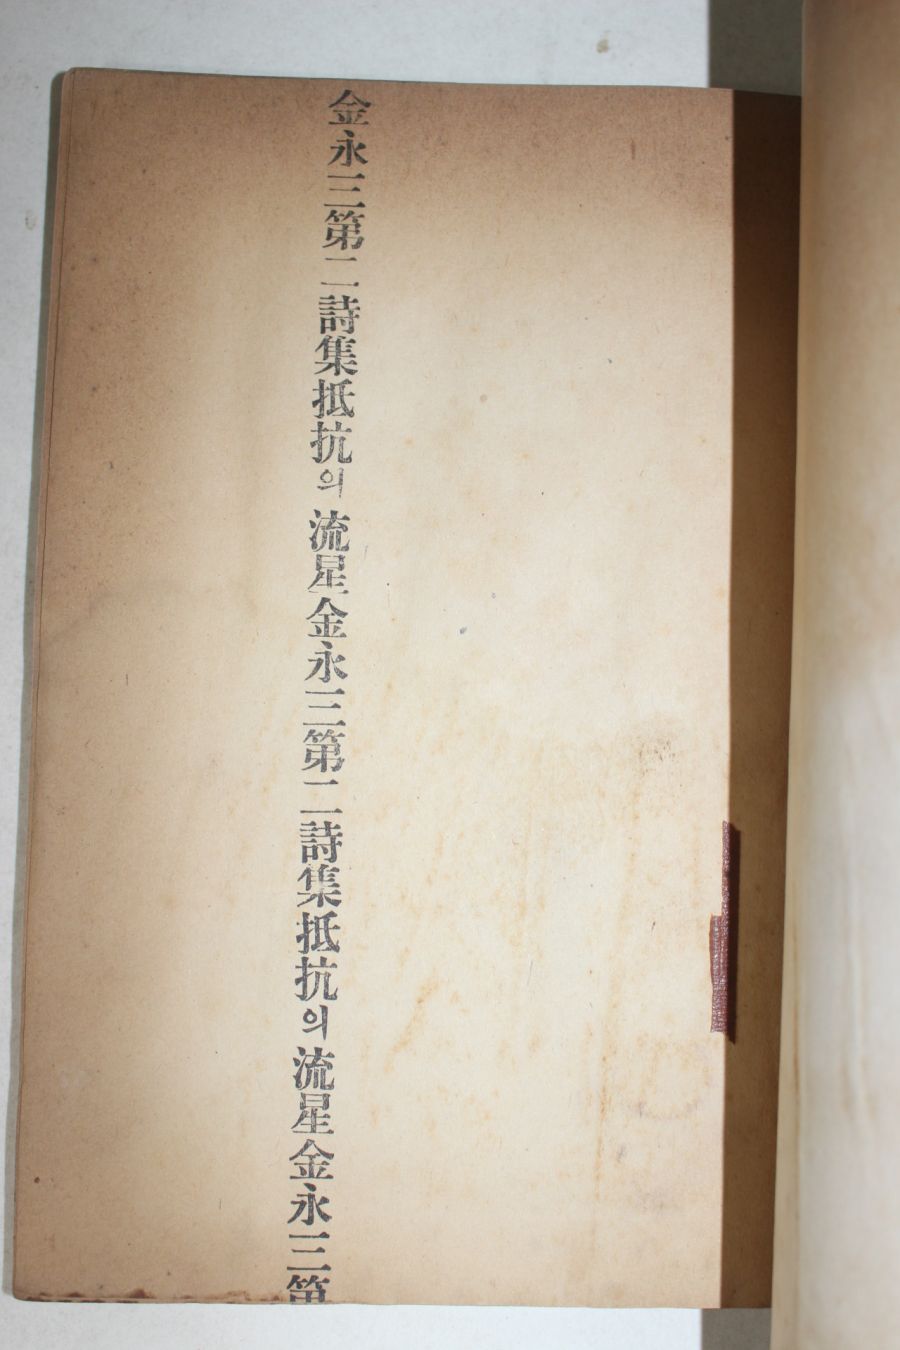 金永三第二詩集抵抗의流星金永三第二詩集抵抗의流星金永三第